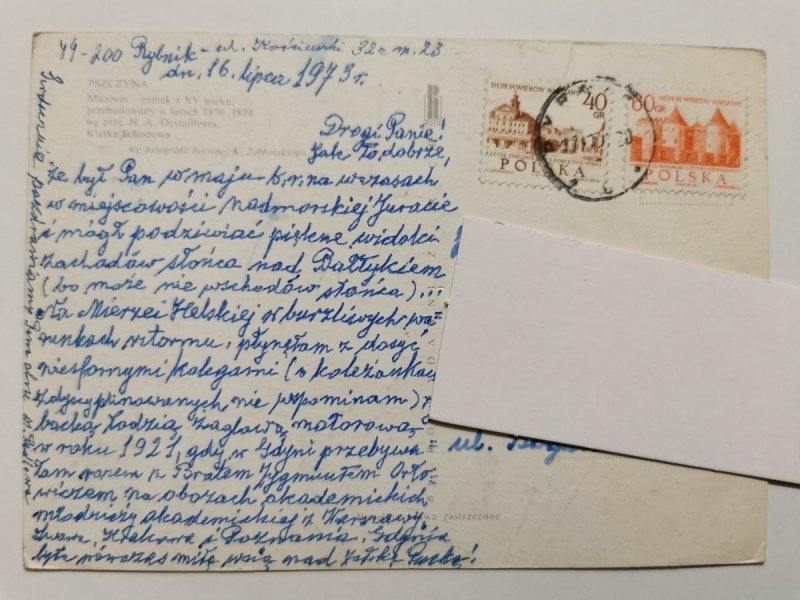 44-200 Rybnik - ul. Kościuszki 32c m. 23
dn. 16. lipca 1973 r.
PSZCZYNA
Muzeum - zamek z XV wieku,
przebudowany w latach 1870-1874
wg proj. H. A. Destailleura,
Klatka Schodowa
wg fotografii barwnej K. Jabłońskiego
SIEDEM WIEKÓW WARSZAWY
40
GR
POLSKA
SIEDEM WIEKÓW WARSZAWY
60
GR
POLSKA
Drogi Panie!
Jak to dobrze,
że był Pan w maju b.r. na wczasach
w miejscowości nadmorskiej Juracie
i mógł podziwiać piękne widoki
zachodów słońca nad Bałtykiem
(bo może nie wschodów słońca)...
Na Mierzei Helskiej w burzliwych wa-
runkach sztormu, płynęłam z dosyć
niesfornymi kolegami (o koleżankach
zdyscyplinowanych nie wspominam) r
backą łodzią żaglową motorową
w roku 1921, gdy w Gdyni przebywa
łam razem z Bratem Zygmuntem Orło-
wiczem na obozach akademickich
młodzieży akademickiej z Warszawy,
Lwowa, Krakowa i Poznania. Gdynia
była wówczas miłą wsią nad Zatoką Pucką!
Serdecznie pozdrawiamy
ul.
zastrzeżone